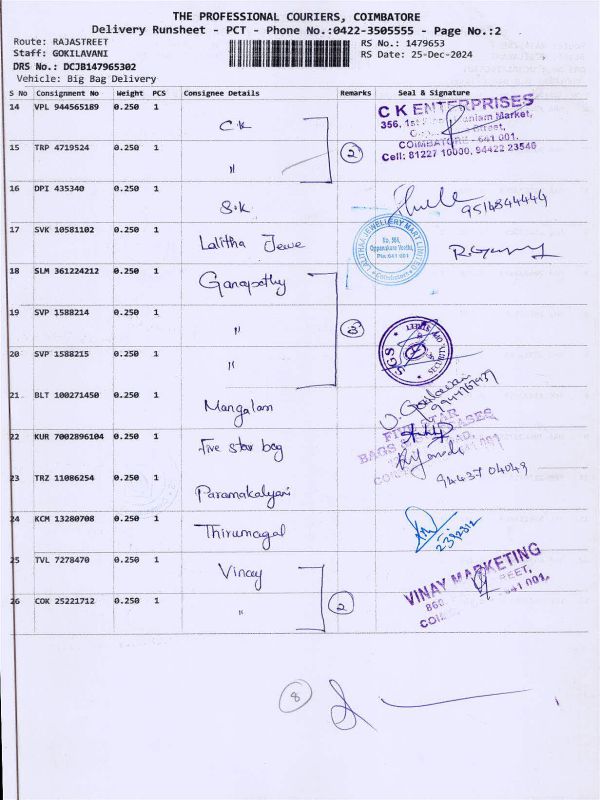 THE PROFESSIONAL COURIERS, COIMBATORE
Delivery Runsheet - PCT - Phone No.:0422-3505555 - Page No.:2
Route: RAJASTREET RS No.: 1479653
Staff: GOKILAVANI RS Date: 25-Dec-2024
DRS No.: DCJB147965302
Vehicle: Big Bag Delivery
S No Consignment No Weight PCS Consignee Details Remarks Seal & Signature
14 VPL 944565189 0.250 1 C K
C K ENTERPRISES
356, 1st Market,
Street,
COIMBATORE - 641 001.
Cell: 81227 10000, 94422 23546
15 TRP 4719524 0.250 1 " 2
16 DPI 435340 0.250 1 S.K 9514844444
17 SVK 10581102 0.250 1 Lalitha Jewe
LALITHAA JEWELLERY MART LIMITED
Oppanakara Veedhi,
Pin 641 001
Coimbatore
18 SLM 361224212 0.250 1 Ganapathy
19 SVP 1588214 0.250 1 " 3
SGS
20 SVP 1588215 0.250 1 "
21 BLT 100271450 0.250 1 Mangalam
22 KUR 7002896104 0.250 1 Five star bag
FIVE STAR
BAGS
23 TRZ 11086254 0.250 1 Paramakalyani 94437 04049
24 KCM 13280708 0.250 1 Thirumagal
25 TVL 7278470 0.250 1 Vinay
VINAY MARKETING
STREET,
641 001.
26 COK 25221712 0.250 1 " 2
8